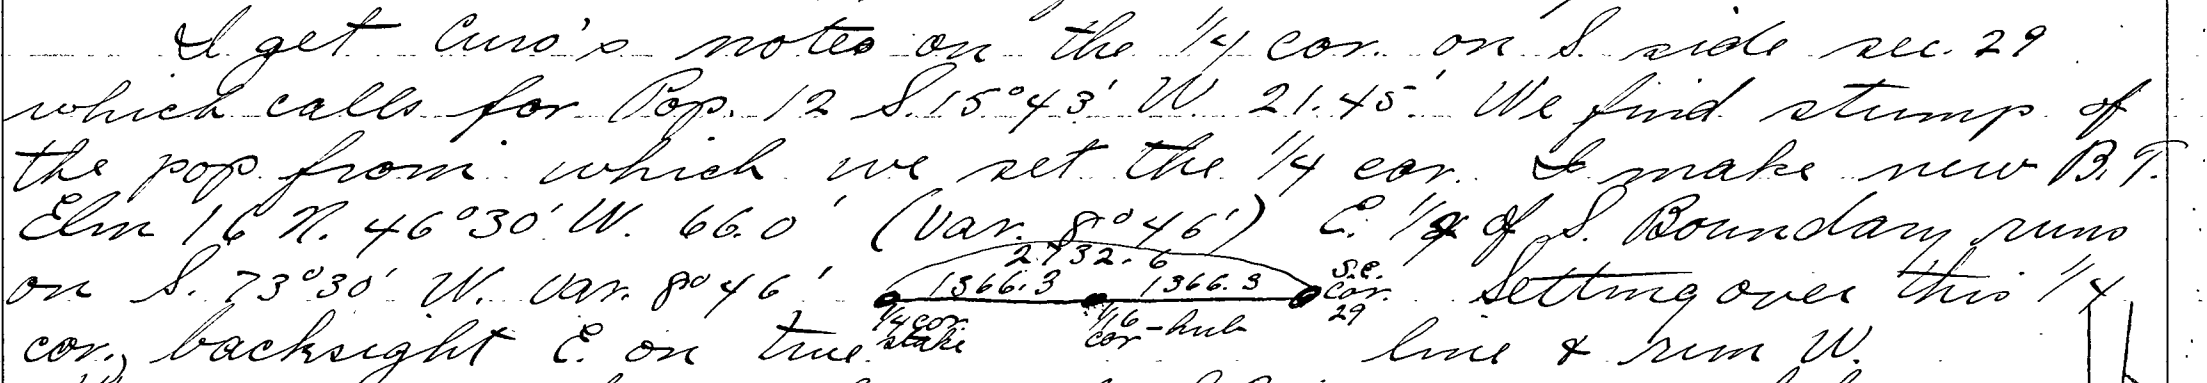 I get Curo's notes on the 1/4 cor. on S. side sec. 29
which calls for Pop. 12 S. 15°43' W. 21.45'. We find stump of
the pop from which we set the 1/4 cor. I make new B.T.
Elm 16 N. 46°30' W. 66.0' (Var. 8°46') E. 1/2 of S. Boundary runs
2732.6
on S. 73°30' W. Var. 8°46' 1366.3 1366.3 S.E. cor. 29 Setting over this 1/4
1/4 cor. stake 1/16 cor - hub
cor., backsight E. on true line & run W.